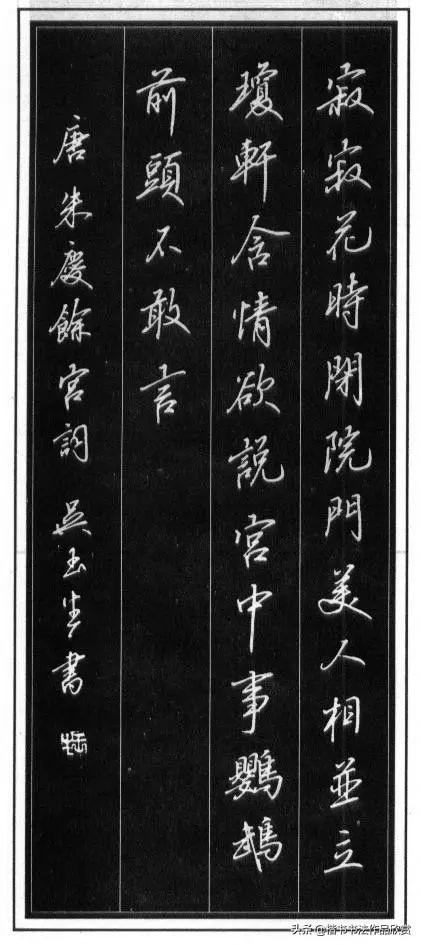 寂寂花時閉院門美人相並立
瓊軒含情欲説宮中事鸚鵡
前頭不敢言
唐朱慶餘宮詞 吳玉生書
头条@楷书书法作品欣赏